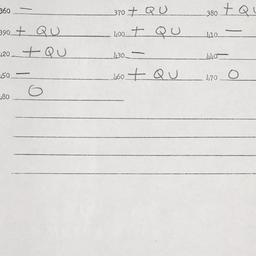 360 — 370 + QU 380 + QU
390 + QU 400 + QU 410 —
420 + QU 430 — 440 —
450 — 460 + QU 470 O
480 O